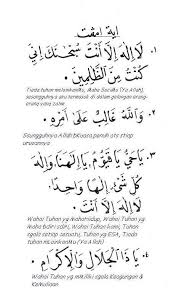 اية امڤت
١. لَا إِلَهَ إِلَّا أَنْتَ سُبْحَنَكَ إِنِّي
كُنْتُ مِنَ الظَّلِمِينَ
Tiada tuhan melainkanMu, Maha SuciMu (Ya Allah),
sesungguhnya aku termasuk di dalam golongan orang-
orang yang zalim
٢. وَاللَّهُ غَالِبٌ عَلَى أَمْرِهِ
Sesungguhnya Allah berkuasa penuh atas setiap
urusannya
٣. يَاحَيُّ يَاقَيُّوْمُ، يَا إِلَهَنَا وَإِلَهَ
كُلِّ شَيْءٍ، إِلَهًا وَاحِدًا،
Wahai Tuhan yg Mahahidup, Wahai Tuhan yg
Maha berdiri sendiri, Wahai Tuhan kami, Tuhan
segala sesuatu, Tuhan yg ESA, Tiada
tuhan melainkanMu (Ya Allah)
٤. يَا ذَا الْجَلَالِ وَالْإِكْرَامِ
Wahai Tuhan yg memiliki segala Keagungan &
Kemuliaan